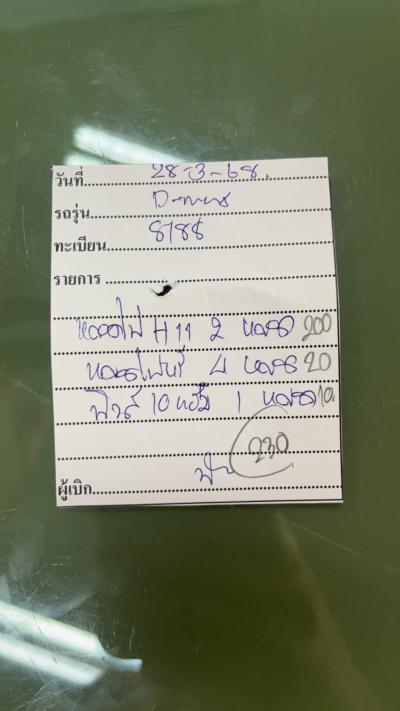 วันที่ 28-3-68.
รถรุ่น D-max
ทะเบียน 8188
รายการ
หลอดไฟ H11 2 หลอด 200
หลอดไฟหรี่ 4 หลอด 20
ฟิวส์ 10 1 หลอด 10
230
ผู้เบิก